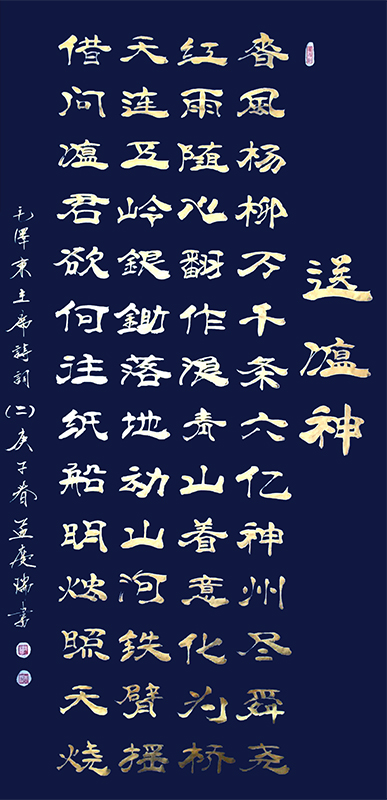 送瘟神
春風杨柳万千条六亿神州尽舜尧
红雨随心翻作浪青山着意化为桥
天连五岭銀鋤落地动山河鉄臂摇
借问瘟君欲何往纸船明烛照天烧
毛澤東主席詩詞(二)庚子春孟慶瑞書